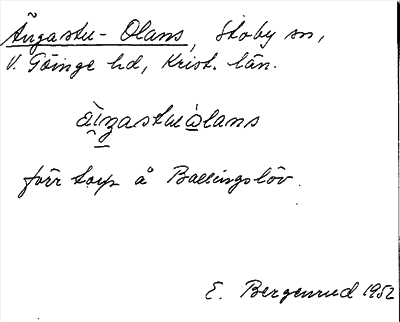 Ängastu-Olans, Stoby sn,
V. Göinge hd, Krist. län.
förr torp å Ballingslöv.
E. Bergenrud 1952